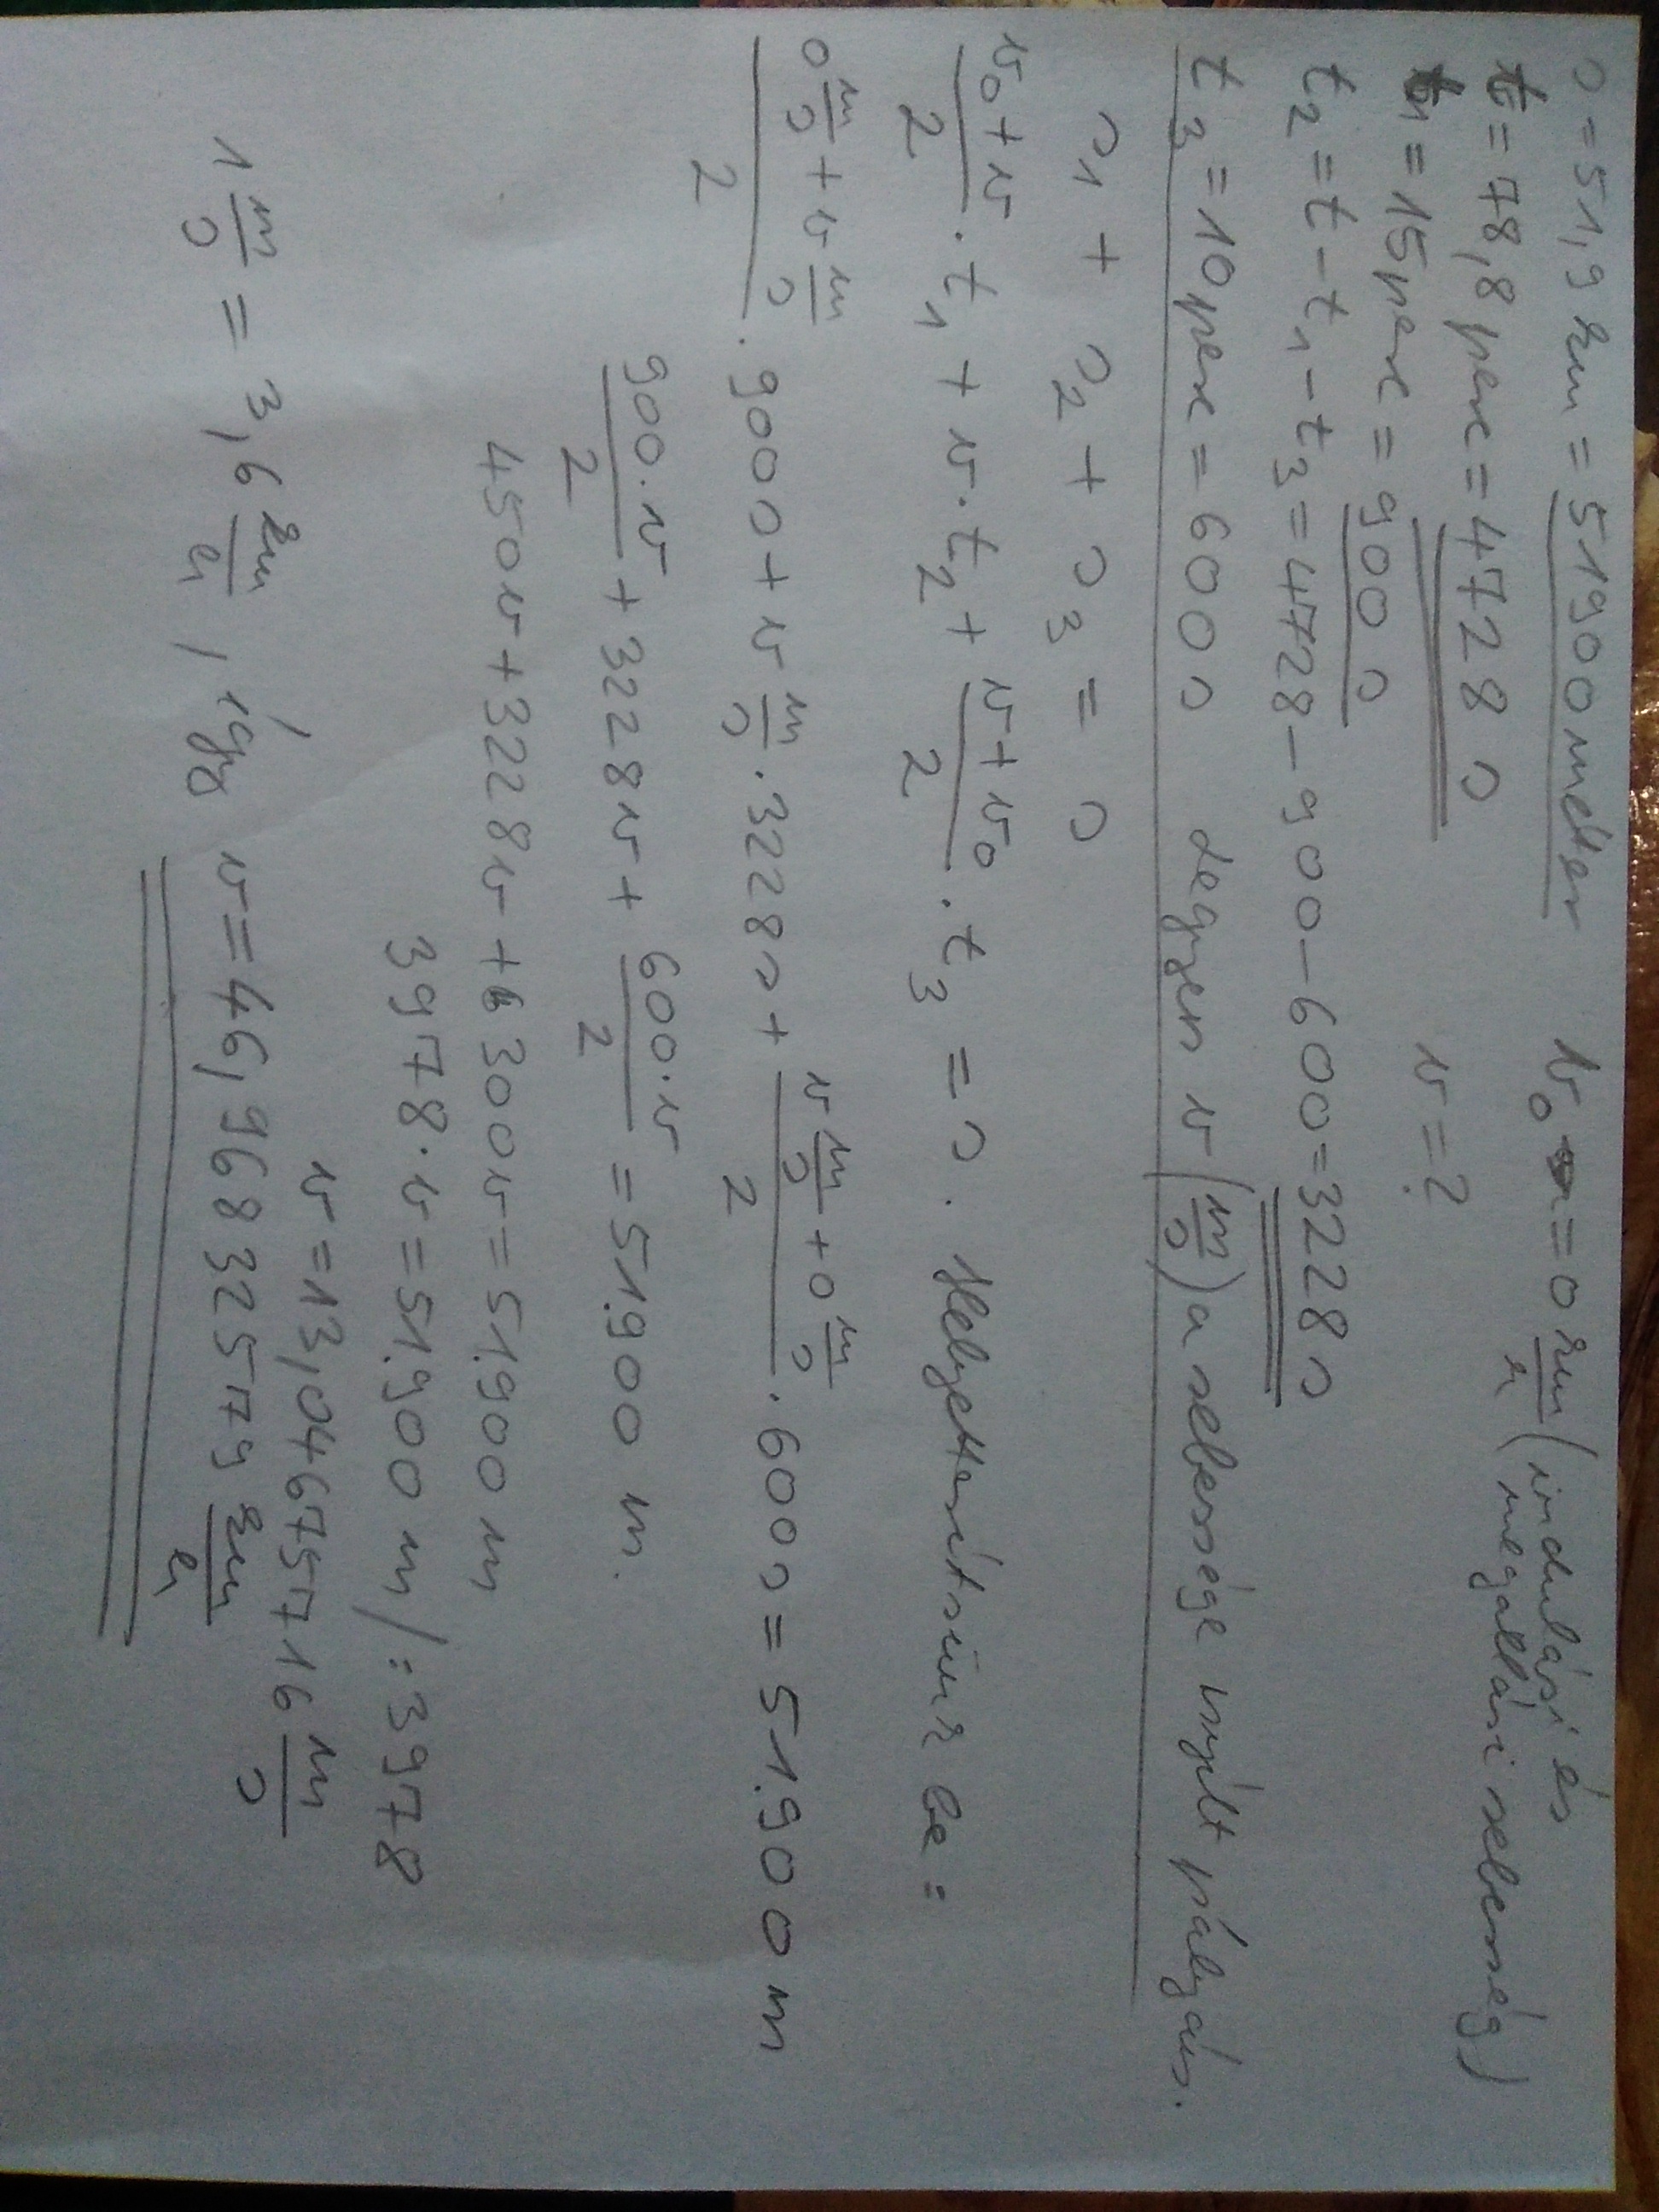 s = 51,9 km = 51900 méter v₀ = 0 km/h (indulási és
megállási sebesség)
t = 78,8 perc = 4728 s
v = ?
t₁ = 15 perc = 900 s
t₂ = t - t₁ - t₃ = 4728 - 900 - 600 = 3228 s
t₃ = 10 perc = 600 s legyen v (m/s) a sebessége nyílt pályán.
s₁ + s₂ + s₃ = s
(v₀+v)/2 · t₁ + v · t₂ + (v+v₀)/2 · t₃ = s. Helyettesítsünk be :
(0 m/s + v m/s)/2 · 900 s + v m/s · 3228 s + (v m/s + 0 m/s)/2 · 600 s = 51.900 m
900·v/2 + 3228v + 600·v/2 = 51.900 m.
450v + 3228v + 300v = 51.900 m
3978·v = 51.900 m /:3978
v = 13,04675716 m/s
1 m/s = 3,6 km/h, így v = 46,96832579 km/h